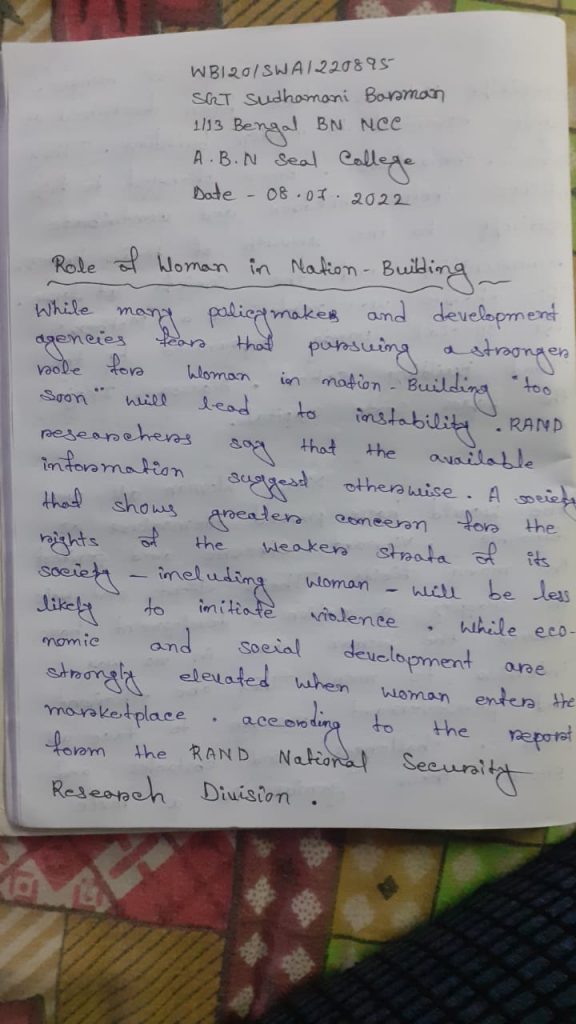 WB120/SWA/220895
SGT Sudhamani Barman
1/13 Bengal BN NCC
A.B.N Seal College
Date - 08.07.2022
Role of Woman in Nation-Building
While many policymakes and development
agencies fear that pursuing a stronger
role for Woman in nation-Building "too
soon" will lead to instability. RAND
researchers say that the available
information suggest otherwise. A society
that shows greater concern for the
rights of the weaker strata of its
society - including woman - will be less
likely to initiate violence. While eco-
nomic and social development are
strongly elevated when woman enter the
marketplace. according to the report
form the RAND National Security
Research Division.